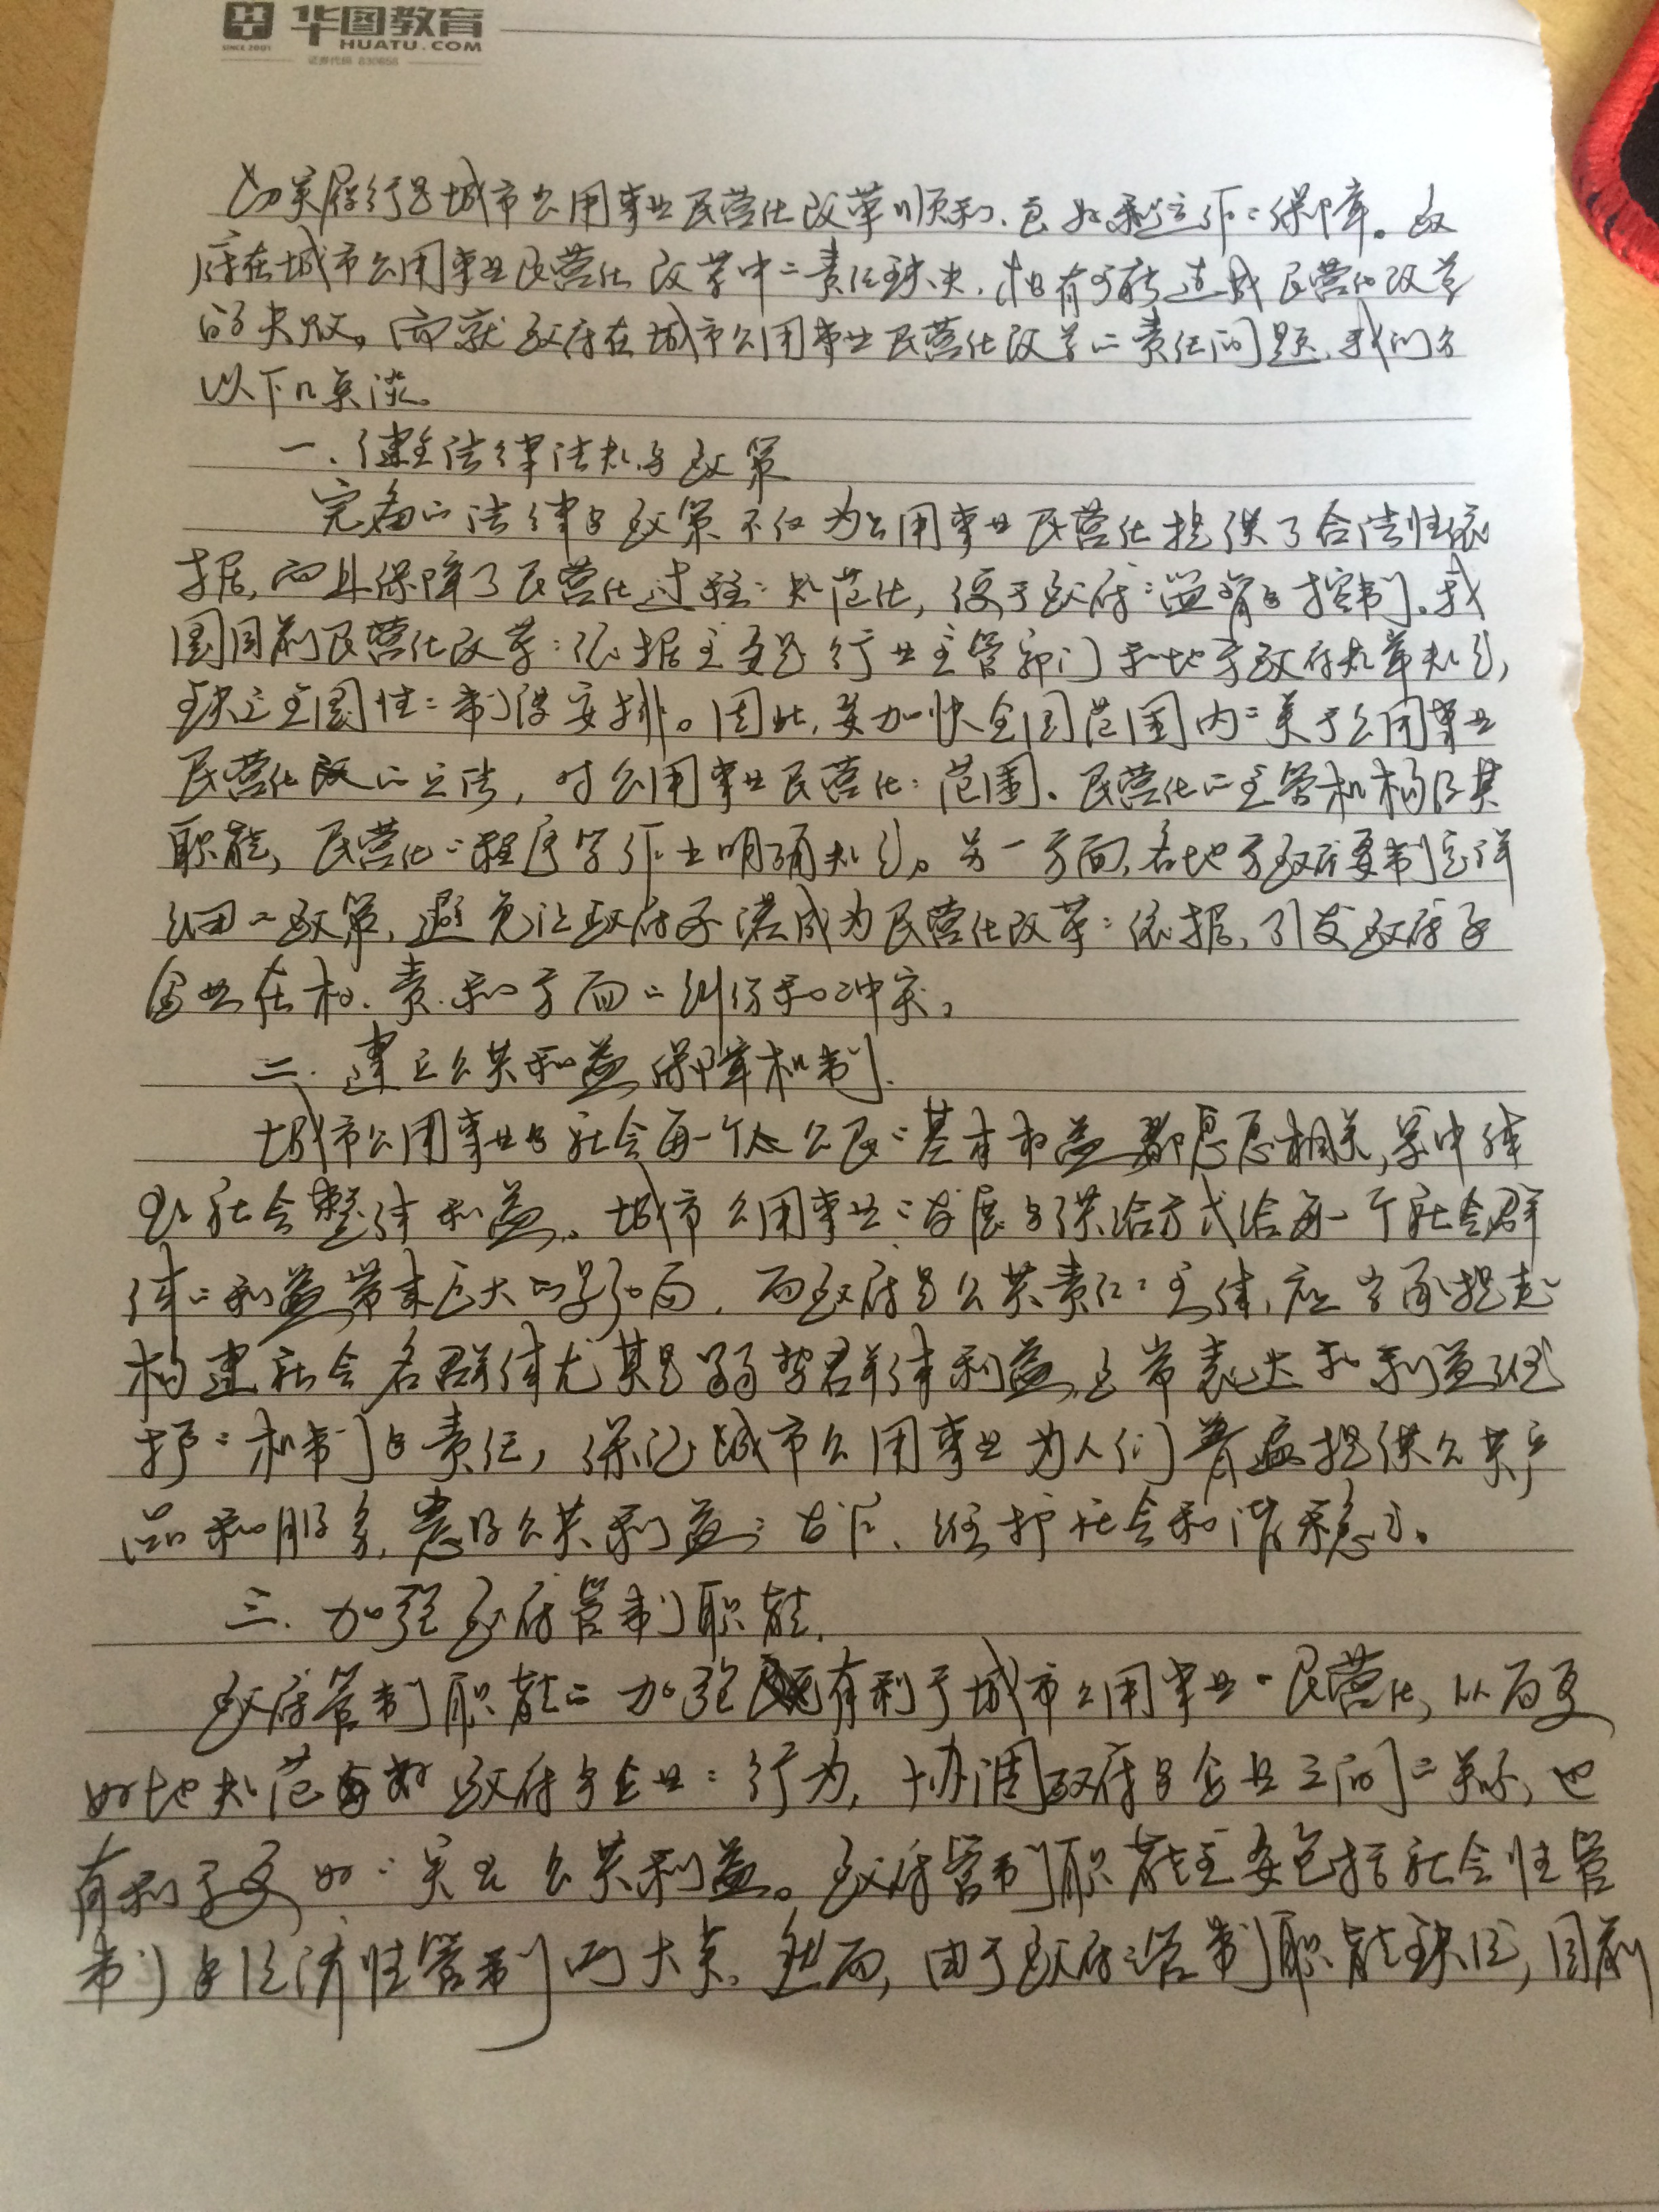 华图教育
HUATU.COM
SINCE 2001
证券代码 830858
切实履行是城市公用事业民营化改革顺利、良好运作的保障。政
府在城市公用事业民营化改革中的责任缺失,极有可能造成民营化改革
的失败。而就政府在城市公用事业民营化改革的责任问题,我们分
以下几点谈。
一、健全法律法规与政策
完备的法律与政策不仅为公用事业民营化提供了合法性依
据,而且保障了民营化过程的规范化,便于政府的监督与控制。我
国目前民营化改革的依据主要是行业主管部门和地方政府规章规定,
缺乏全国性的制度安排。因此,要加快全国范围内的关于公用事业
民营化的立法,对公用事业民营化的范围、民营化的主管机构及其
职能,民营化的程序等作出明确规定。另一方面,各地方政府要制定详
细的政策,避免让政府承诺成为民营化改革的依据,引发政府和
企业在权、责、利方面的纠纷和冲突。
二、建立公共利益保障机制.
城市公用事业与社会每一个公民的基本利益都息息相关,集中体
现社会整体利益。城市公用事业的发展与供给方式给每一个社会群
体的利益带来巨大的影响,而政府是公共责任的主体,应当承担起
构建社会各群体尤其是弱势群体利益正常表达和利益维
护的机制与责任,保证城市公用事业为人们普遍提供公共产
品和服务,公共利益的,维护社会和谐稳定。
三、加强政府管制职能.
政府管制职能的加强既有利于城市公用事业的民营化,从而更
好地规范政府与企业的行为,协调政府与企业之间的关系,也
有利于更好的实现公共利益。政府管制职能主要包括社会性管
制与经济性管制两大类。然而,由于政府的管制职能缺位,目前